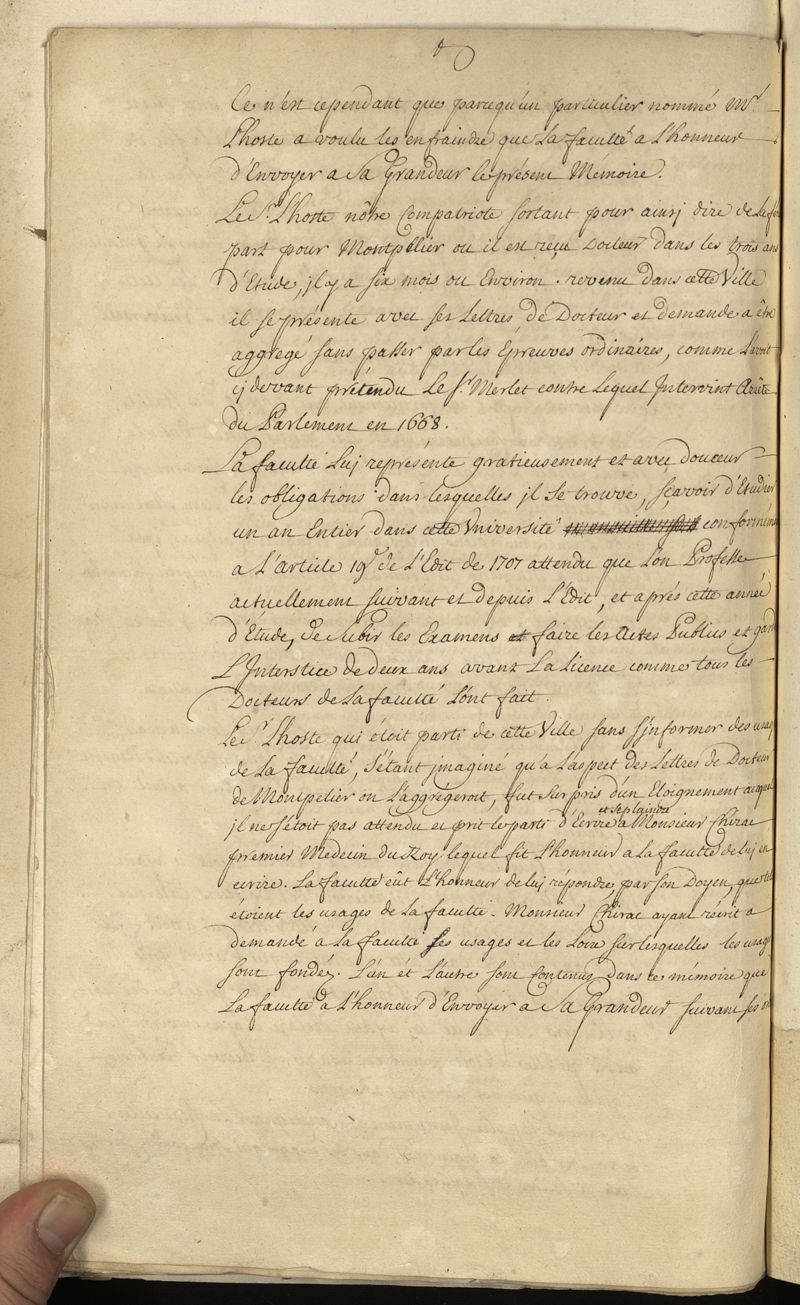 Ce n'est cependant que parcequ'un particulier nommé Mr.
Lhoste a voulu les enfraindre que La faculté a L'honneur
d'Envoyer a Sa Grandeur le présent Mémoire.
Le Sr. Lhoste nôtre Compatriote sortant pour ainsj dire de La
part pour Montpellier ou il est reçu Docteur dans les trois ans
d'Etude, jl y a six mois ou Environ. revenu dans cette Ville
il se présente avec ses Lettres de Docteur et demande a être
aggregé sans passer par les Epreuves ordinaires, comme L'avoit
cj devant prétendu Le Sr. Merlet contre lequel Intervint Arrête
du Parlement en 1668.
La faculté Luj représente gratieusement et avec douceur
les obligations dans lesquelles jl se trouve, sçavoir d'Etudier
un an Entier dans cette Université conformém
a L'article 19e de L'Edit de 1707 attendu que L'on Professe
actuellement suivant et depuis L'Edit, et aprés cette année
d'Etude, de subir les Examens et faire les Actes Publics et gard
L'Interstice de deux ans avant La Licence comme tous les
Docteurs de La faculté L'ont fait.
Le Sr Lhoste qui étoit parti de cette Ville sans s'jnformer des usag
de La faculté, s'étant jmaginé qu'a L'aspect des Lettres de Docteur
de Montpelier on L'aggrégeroit, fut surpris d'un Eloignement auquel
jl ne s'étoit pas attendu et prit le parti d'Ecrire et se plaindre a Monsieur Chirac
premier Medecin du Roy lequel fit L'honneur a La faculté de luj en
ecrire. La faculté eût L'honneur de luj répondre, par son Doyen, que tels
étoient les usages de La faculté. Monsieur Chirac ayant récrit a
demandé à La faculté ses usages et les Loix sur lesquelles les usages
sont fondés. L'un et L'autre sont Contenus dans ce mémoire que
La faculté a L'honneur d'Envoyer a Sa Grandeur suivant ses